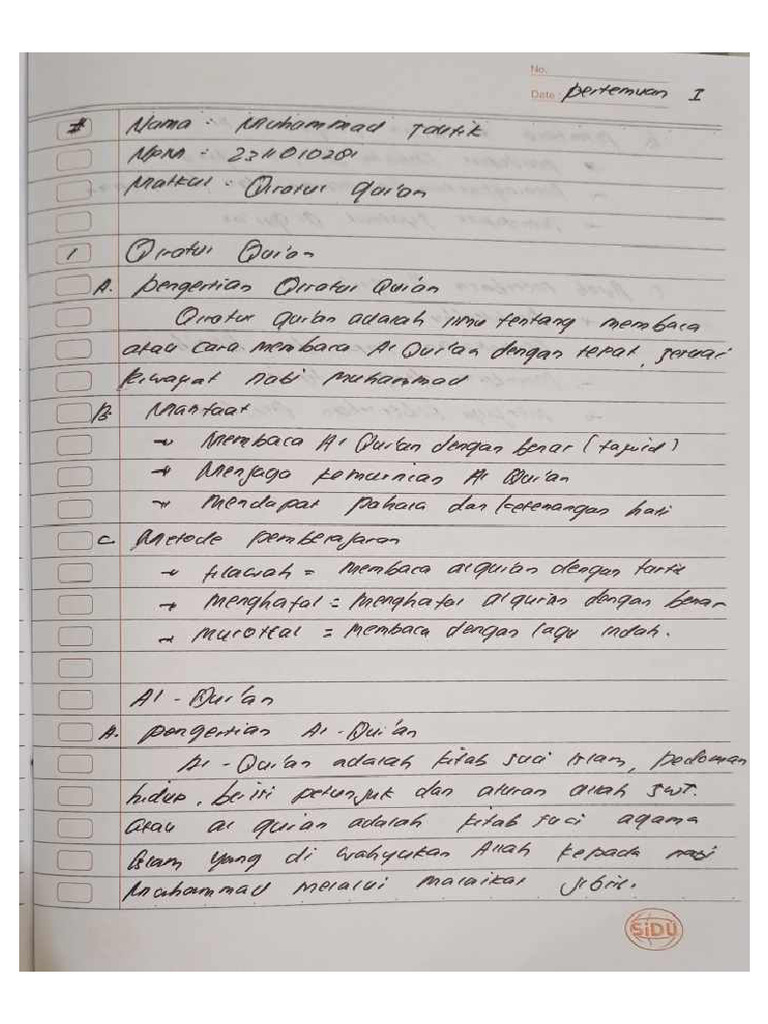 No.
Date: Pertemuan I
# Nama : Muhammad Taufik
NPM : 2311010281
Matkul : Qiratul Qur'an
1 Qiratul Qur'an
A. pengertian Qiratul Qur'an
Qiratul Qur'an adalah ilmu tentang membaca
atau cara membaca Al Qur'an dengan tepat, sesuai
Riwayat nabi Muhammad
B Manfaat
→ Membaca Al Qur'an dengan benar (tajwid)
→ Menjaga kemurnian Al Qur'an
→ Mendapat pahala dan ketenangan hati
C Metode pemberajaran
→ tilawah = Membaca alqur'an dengan tartil
→ menghafal = Menghafal alqur'an dengan benar
→ Murottal = Membaca dengan lagu indah.
Al - Qur'an
A. pengertian Al - Qur'an
Al - Qur'an adalah kitab suci Islam, pedoman
hidup, berisi petunjuk dan aturan allah swt.
atau al qur'an adalah kitab suci agama
Islam yang di wahyukan Allah kepada nabi
Muhammad melalui malaikat jibril.
SiDU